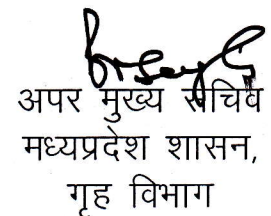 अपर मुख्य सचिव
मध्यप्रदेश शासन,
गृह विभाग